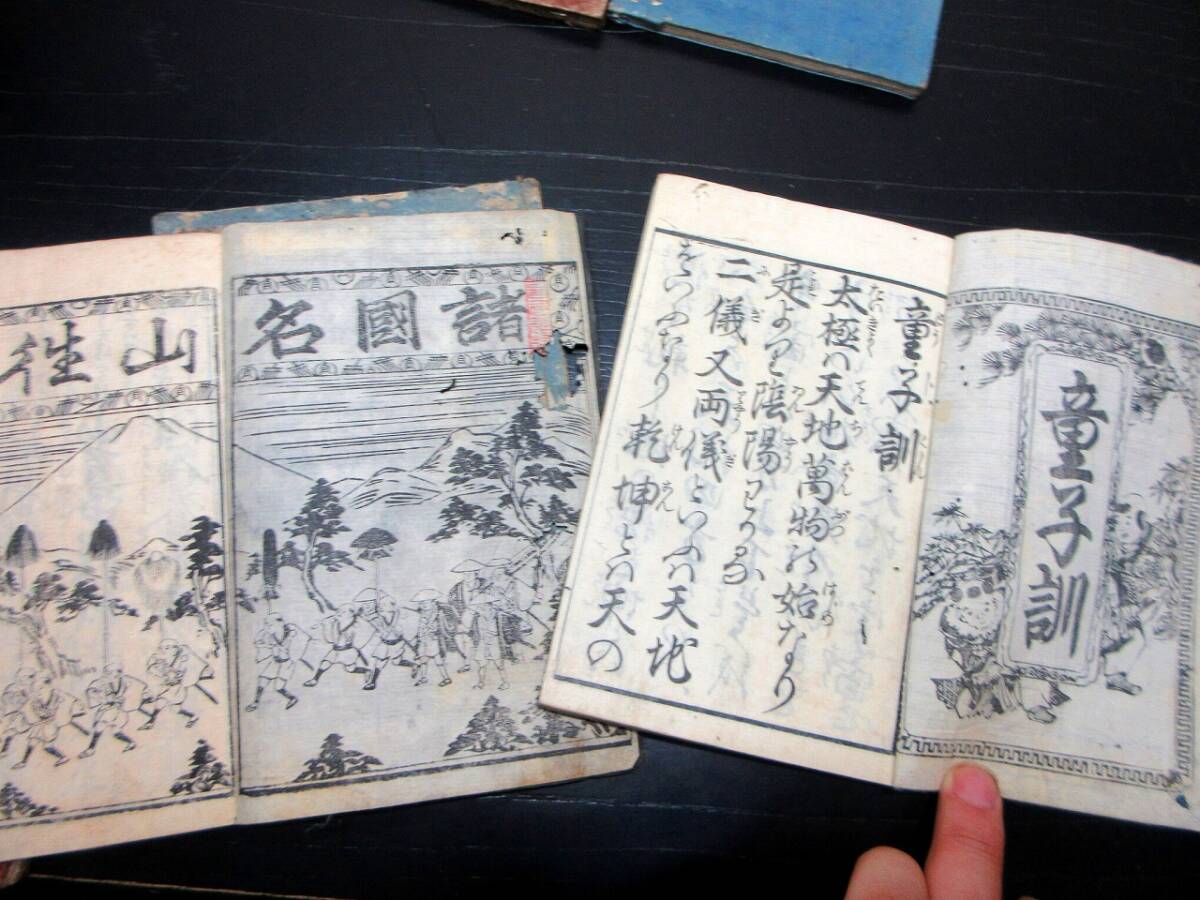 童子訓
童子訓
太極ハ天地萬物の始なり
是より陰陽わかる
二儀又両儀といふハ天地
をいふなり乾坤とハ天の
諸國名
山徃